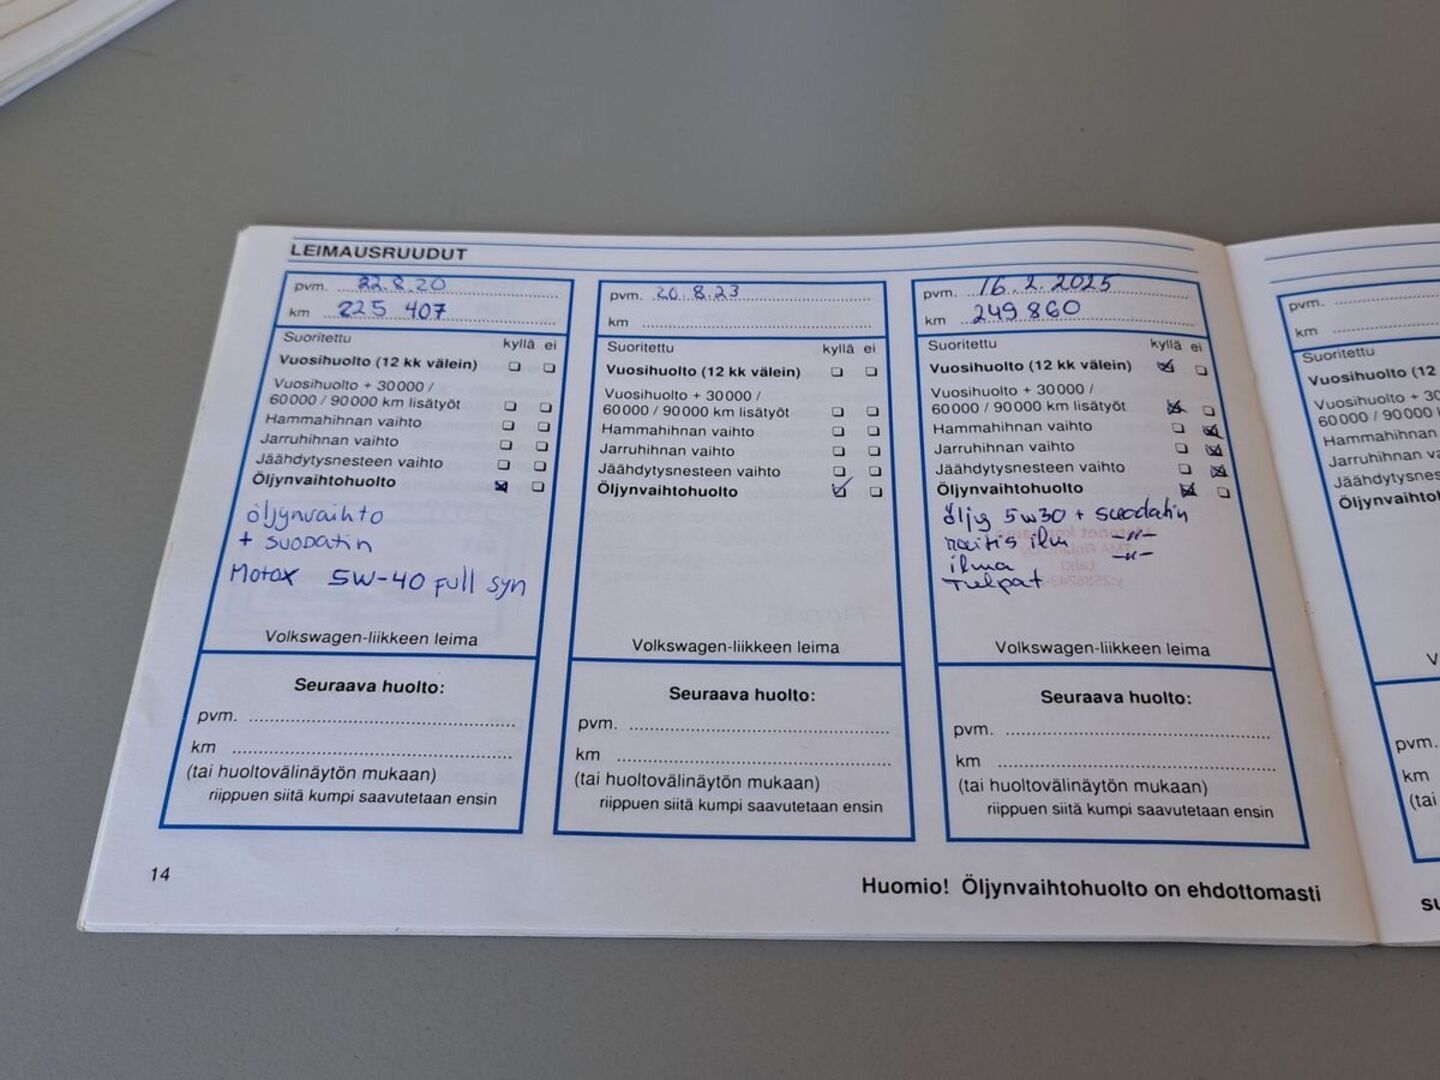 LEIMAUSRUUDUT
pvm. 22.8.20
km 225 407
Suoritettu kyllä ei
Vuosihuolto (12 kk välein)
Vuosihuolto + 30 000 /
60 000 / 90 000 km lisätyöt
Hammahihnan vaihto
Jarruhihnan vaihto
Jäähdytysnesteen vaihto
Öljynvaihtohuolto
öljynvaihto
+ suodatin
Motox 5W-40 Full syn
Volkswagen-liikkeen leima
Seuraava huolto:
pvm.
km
(tai huoltovälinäytön mukaan)
riippuen siitä kumpi saavutetaan ensin
pvm. 20.8.23
km
Suoritettu kyllä ei
Vuosihuolto (12 kk välein)
Vuosihuolto + 30 000 /
60 000 / 90 000 km lisätyöt
Hammahihnan vaihto
Jarruhihnan vaihto
Jäähdytysnesteen vaihto
Öljynvaihtohuolto
Volkswagen-liikkeen leima
Seuraava huolto:
pvm.
km
(tai huoltovälinäytön mukaan)
riippuen siitä kumpi saavutetaan ensin
pvm. 16.2.2025
km 249 860
Suoritettu kyllä ei
Vuosihuolto (12 kk välein)
Vuosihuolto + 30 000 /
60 000 / 90 000 km lisätyöt
Hammahihnan vaihto
Jarruhihnan vaihto
Jäähdytysnesteen vaihto
Öljynvaihtohuolto
öljy 5w30 + suodatin
raitis ilm -"-
ilma -"-
Tulpat
Volkswagen-liikkeen leima
Seuraava huolto:
pvm.
km
(tai huoltovälinäytön mukaan)
riippuen siitä kumpi saavutetaan ensin
14
Huomio! Öljynvaihtohuolto on ehdottomasti
pvm.
km
Suoritettu
Vuosihuolto (12
Vuosihuolto + 30
60 000 / 90 000
Hammahihnan
Jarruhihnan
pvm.
km
(tai